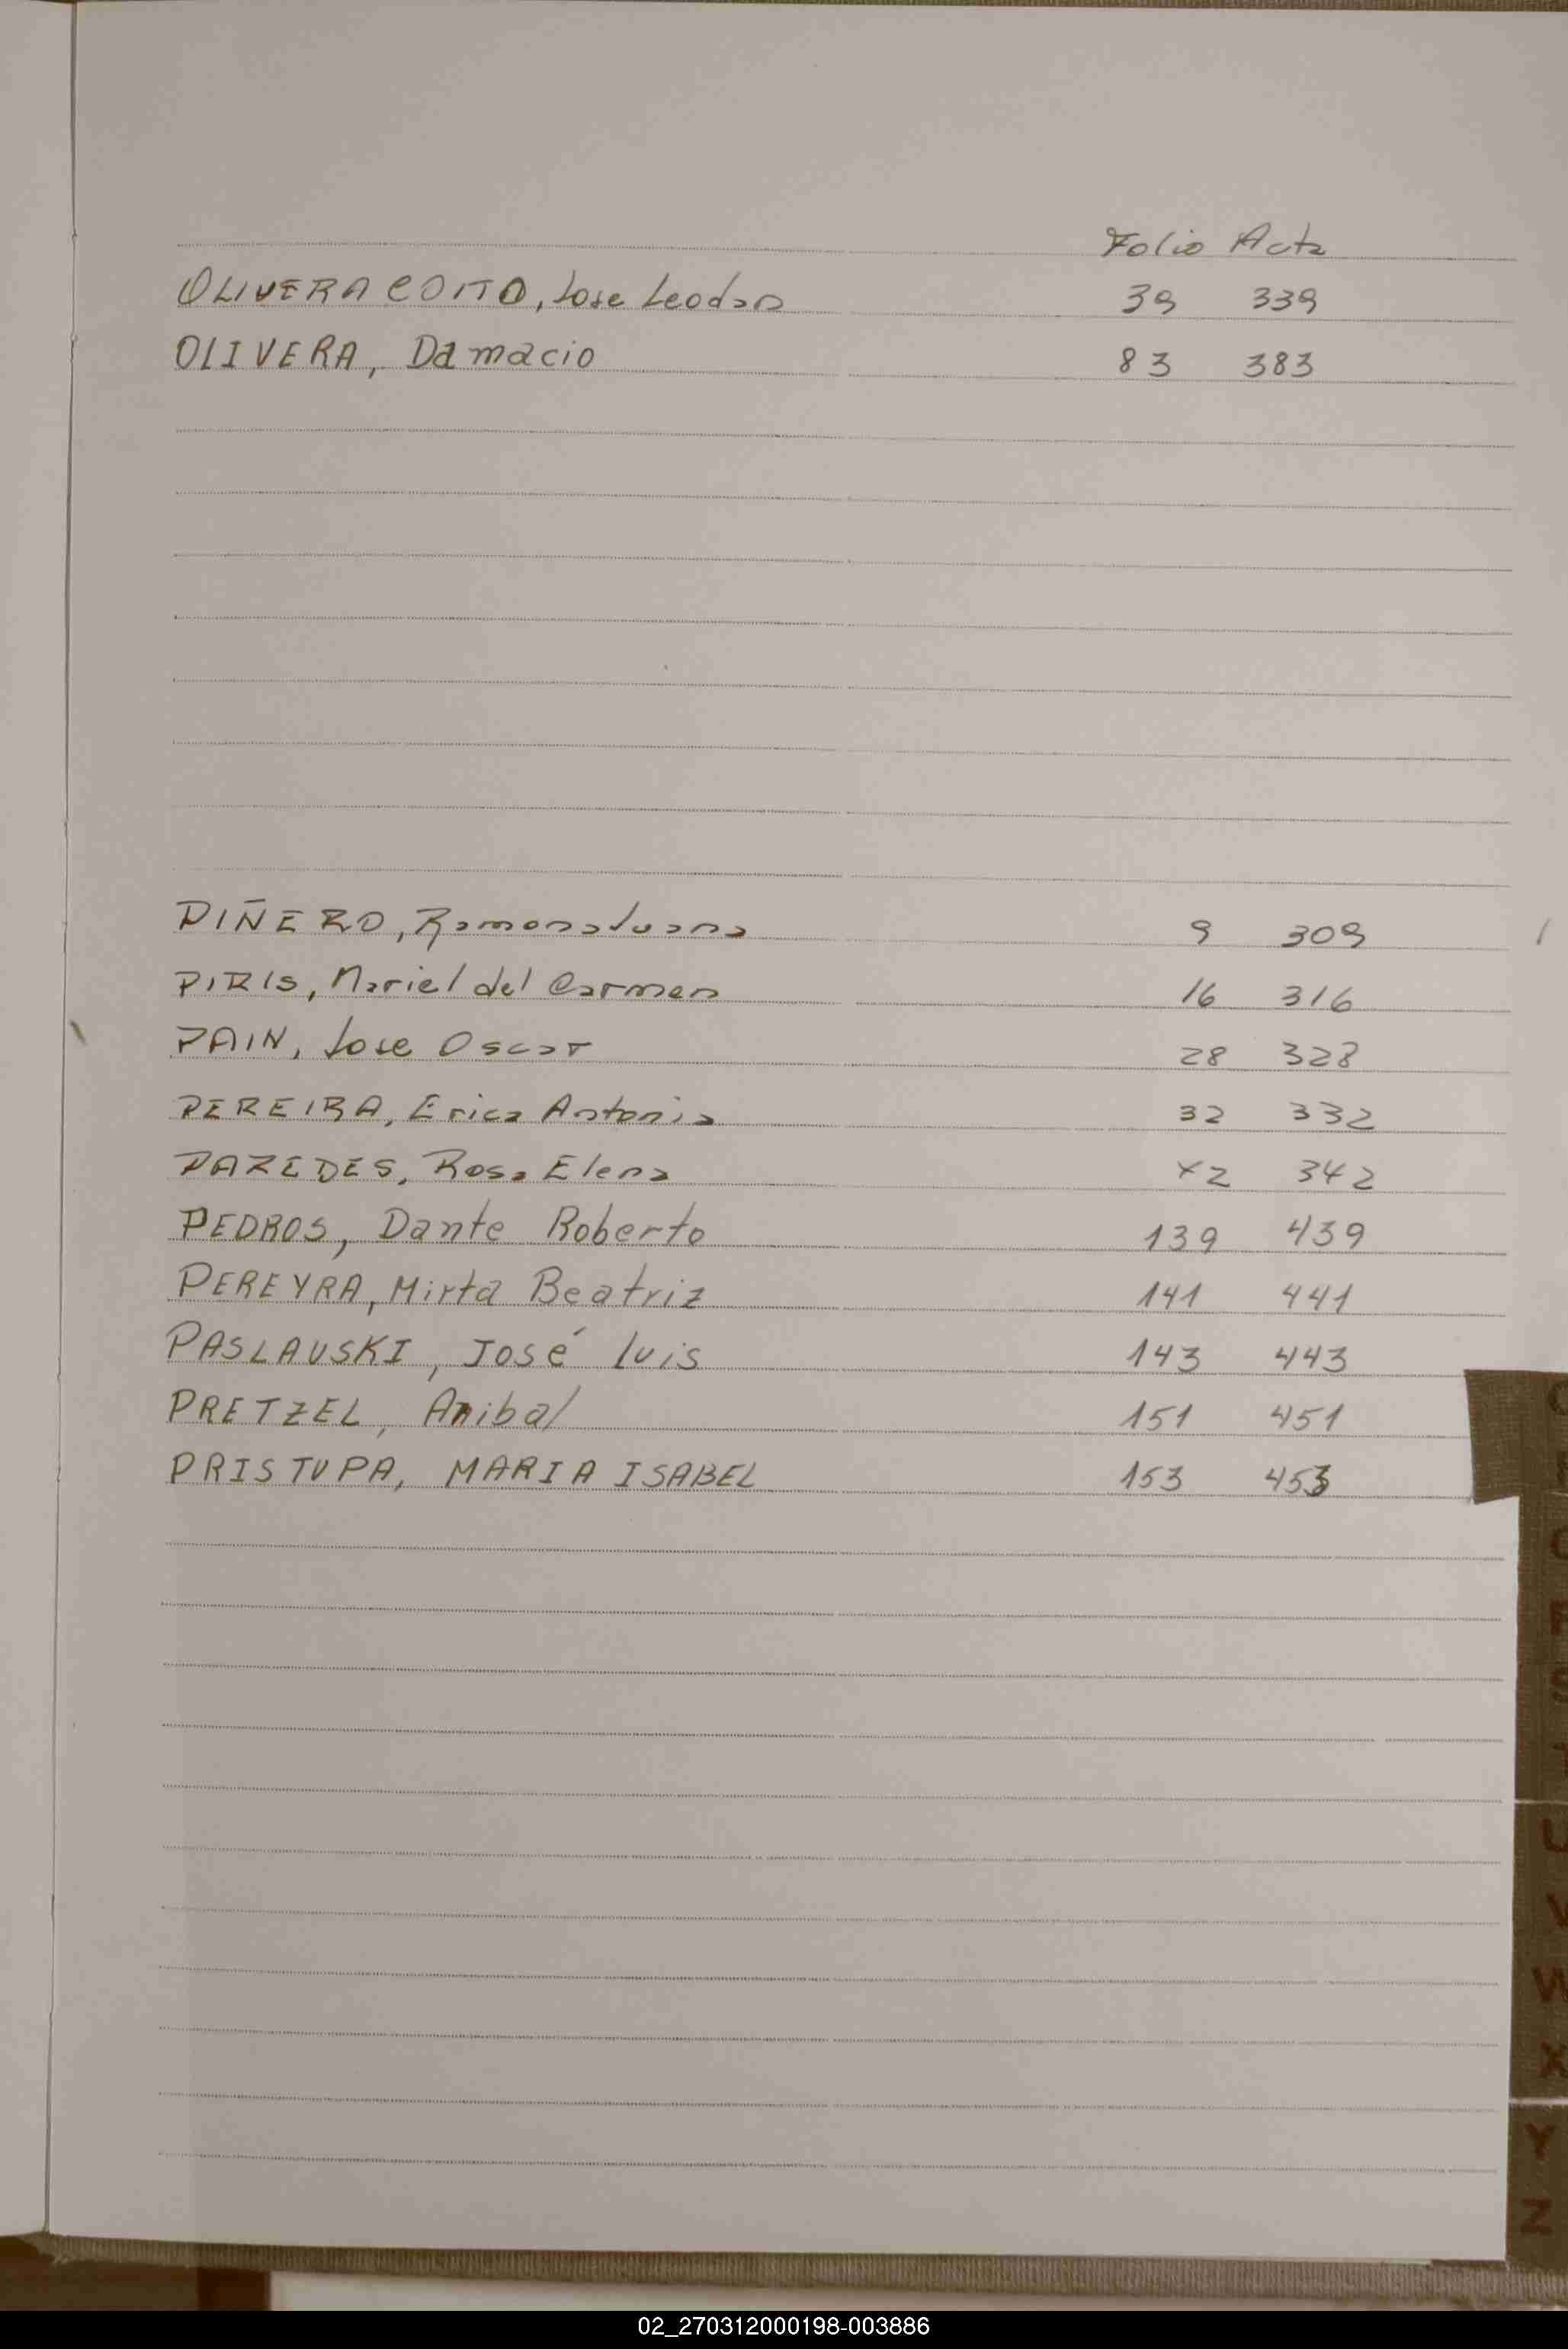 Folio Acta
OLIVERA COITO, Jose Leodan 39 339
OLIVERA, Damacio 83 383
PIÑERO, Ramona Juana 9 309
PIRIS, Mariel del Carmen 16 316
PAIN, Jose Oscar 28 328
PEREIRA, Erica Antonia 32 332
PAREDES, Rosa Elena 42 342
PEDROS, Dante Roberto 139 439
PEREYRA, Mirta Beatriz 141 441
PASLAUSKI, José Luis 143 443
PRETZEL, Anibal 151 451
PRISTUPA, MARIA ISABEL 153 453
U
V
W
X
Y
Z
02_270312000198-003886